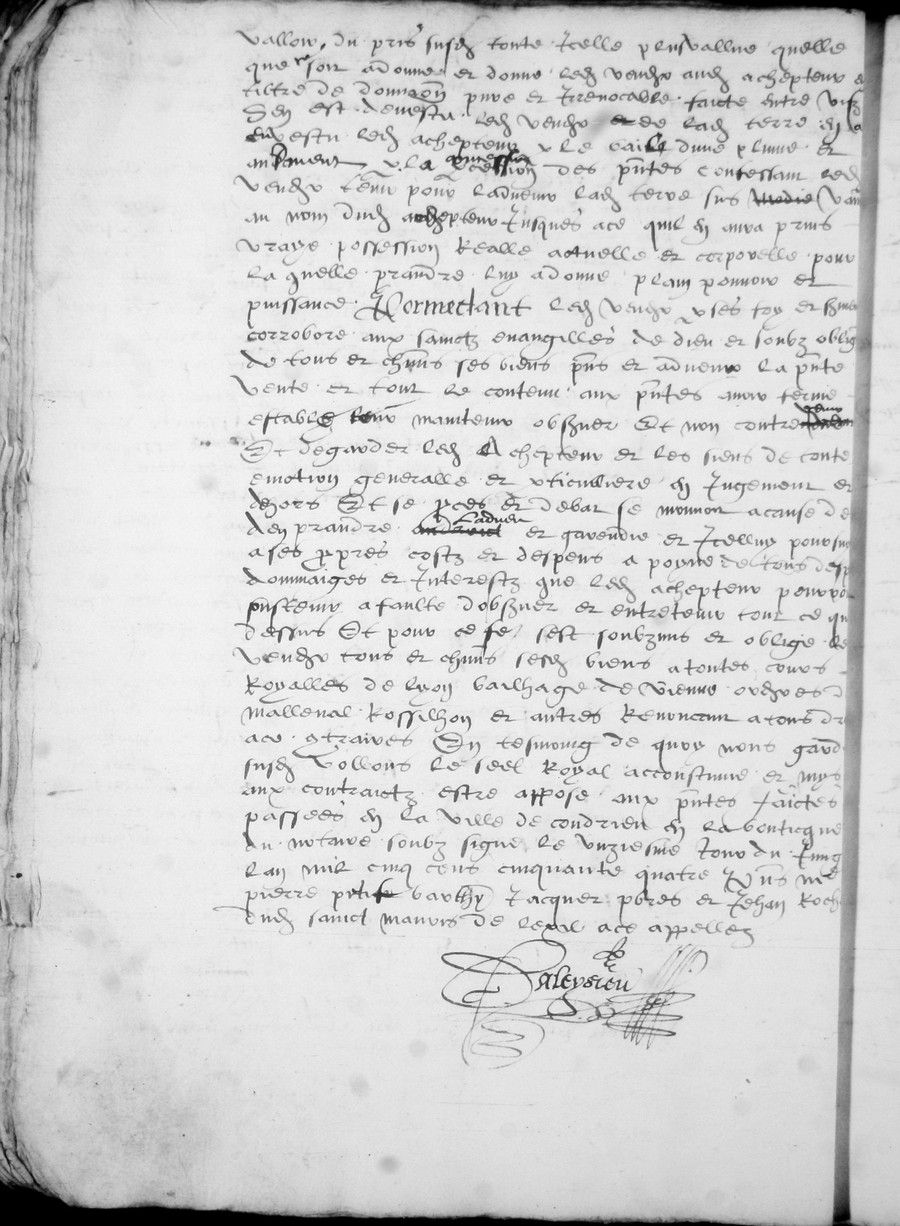 valloir du pris susd toute Icelle plusvallue quelle
que soit a donne et donne led vendr aud achepteur
tiltre de donnaon pure et Irrevocable faicte entre vifz
Sen est devestu led vendr de lad terre en
envestu led achepteur p le bail dune plume et
p la des pntes confessant led
vendr tenir pour ladvenir lad terre sus
au nom dud achepteur Jusques ace quil en aura prins
vraye possession Realle actuelle et corporelle pour
la quelle prandre luy a donne plain pouvoir et
puissance Promectant led vendr p ses foy et
corrobore aux sainctz evangilles de dieu et soubz oblig
de tous et chuns ses biens pns et advenir la pnte
vente et tout le contenu aux pntes avoir ferme
estable tenir maintenir obsuer Et non contrevenir
Et degarder led Achepteur et les siens de toute
emotion generalle et pticulliere en Jugement et
dehors Et se pces et debat se mouvoit acause de
den prandre ladveu et garendie et Icelluy poursui
a ses ppres costz et despens a poyne de tous desp
dommaiges et Interestz que led achepteur pourroi
a faulte dobsuer et entretenir tout ce que
dessus Et pour ce fe sest soubzmis et oblige le
vendr tous et chuns sesd biens a toutes cours
Royalles de lyon bailhage de vienne
mallenal Rossilhon et autres Renoncant a tous dr
ace gtraires En tesmoing de quoy nous gard
susd vollons le seel Royal accoustume et mys
aux contraictz estre appose aux pntes faictes
passees en la ville de condrieu en la bouticque
du notaire soubz signe le unziesme Jour du Juing
lan mil cinq cens cinquante quatre pns me
pierre petit barthy Jacquet pbres et Jehan Roch
dud sainct mauris de lexil ace appellez